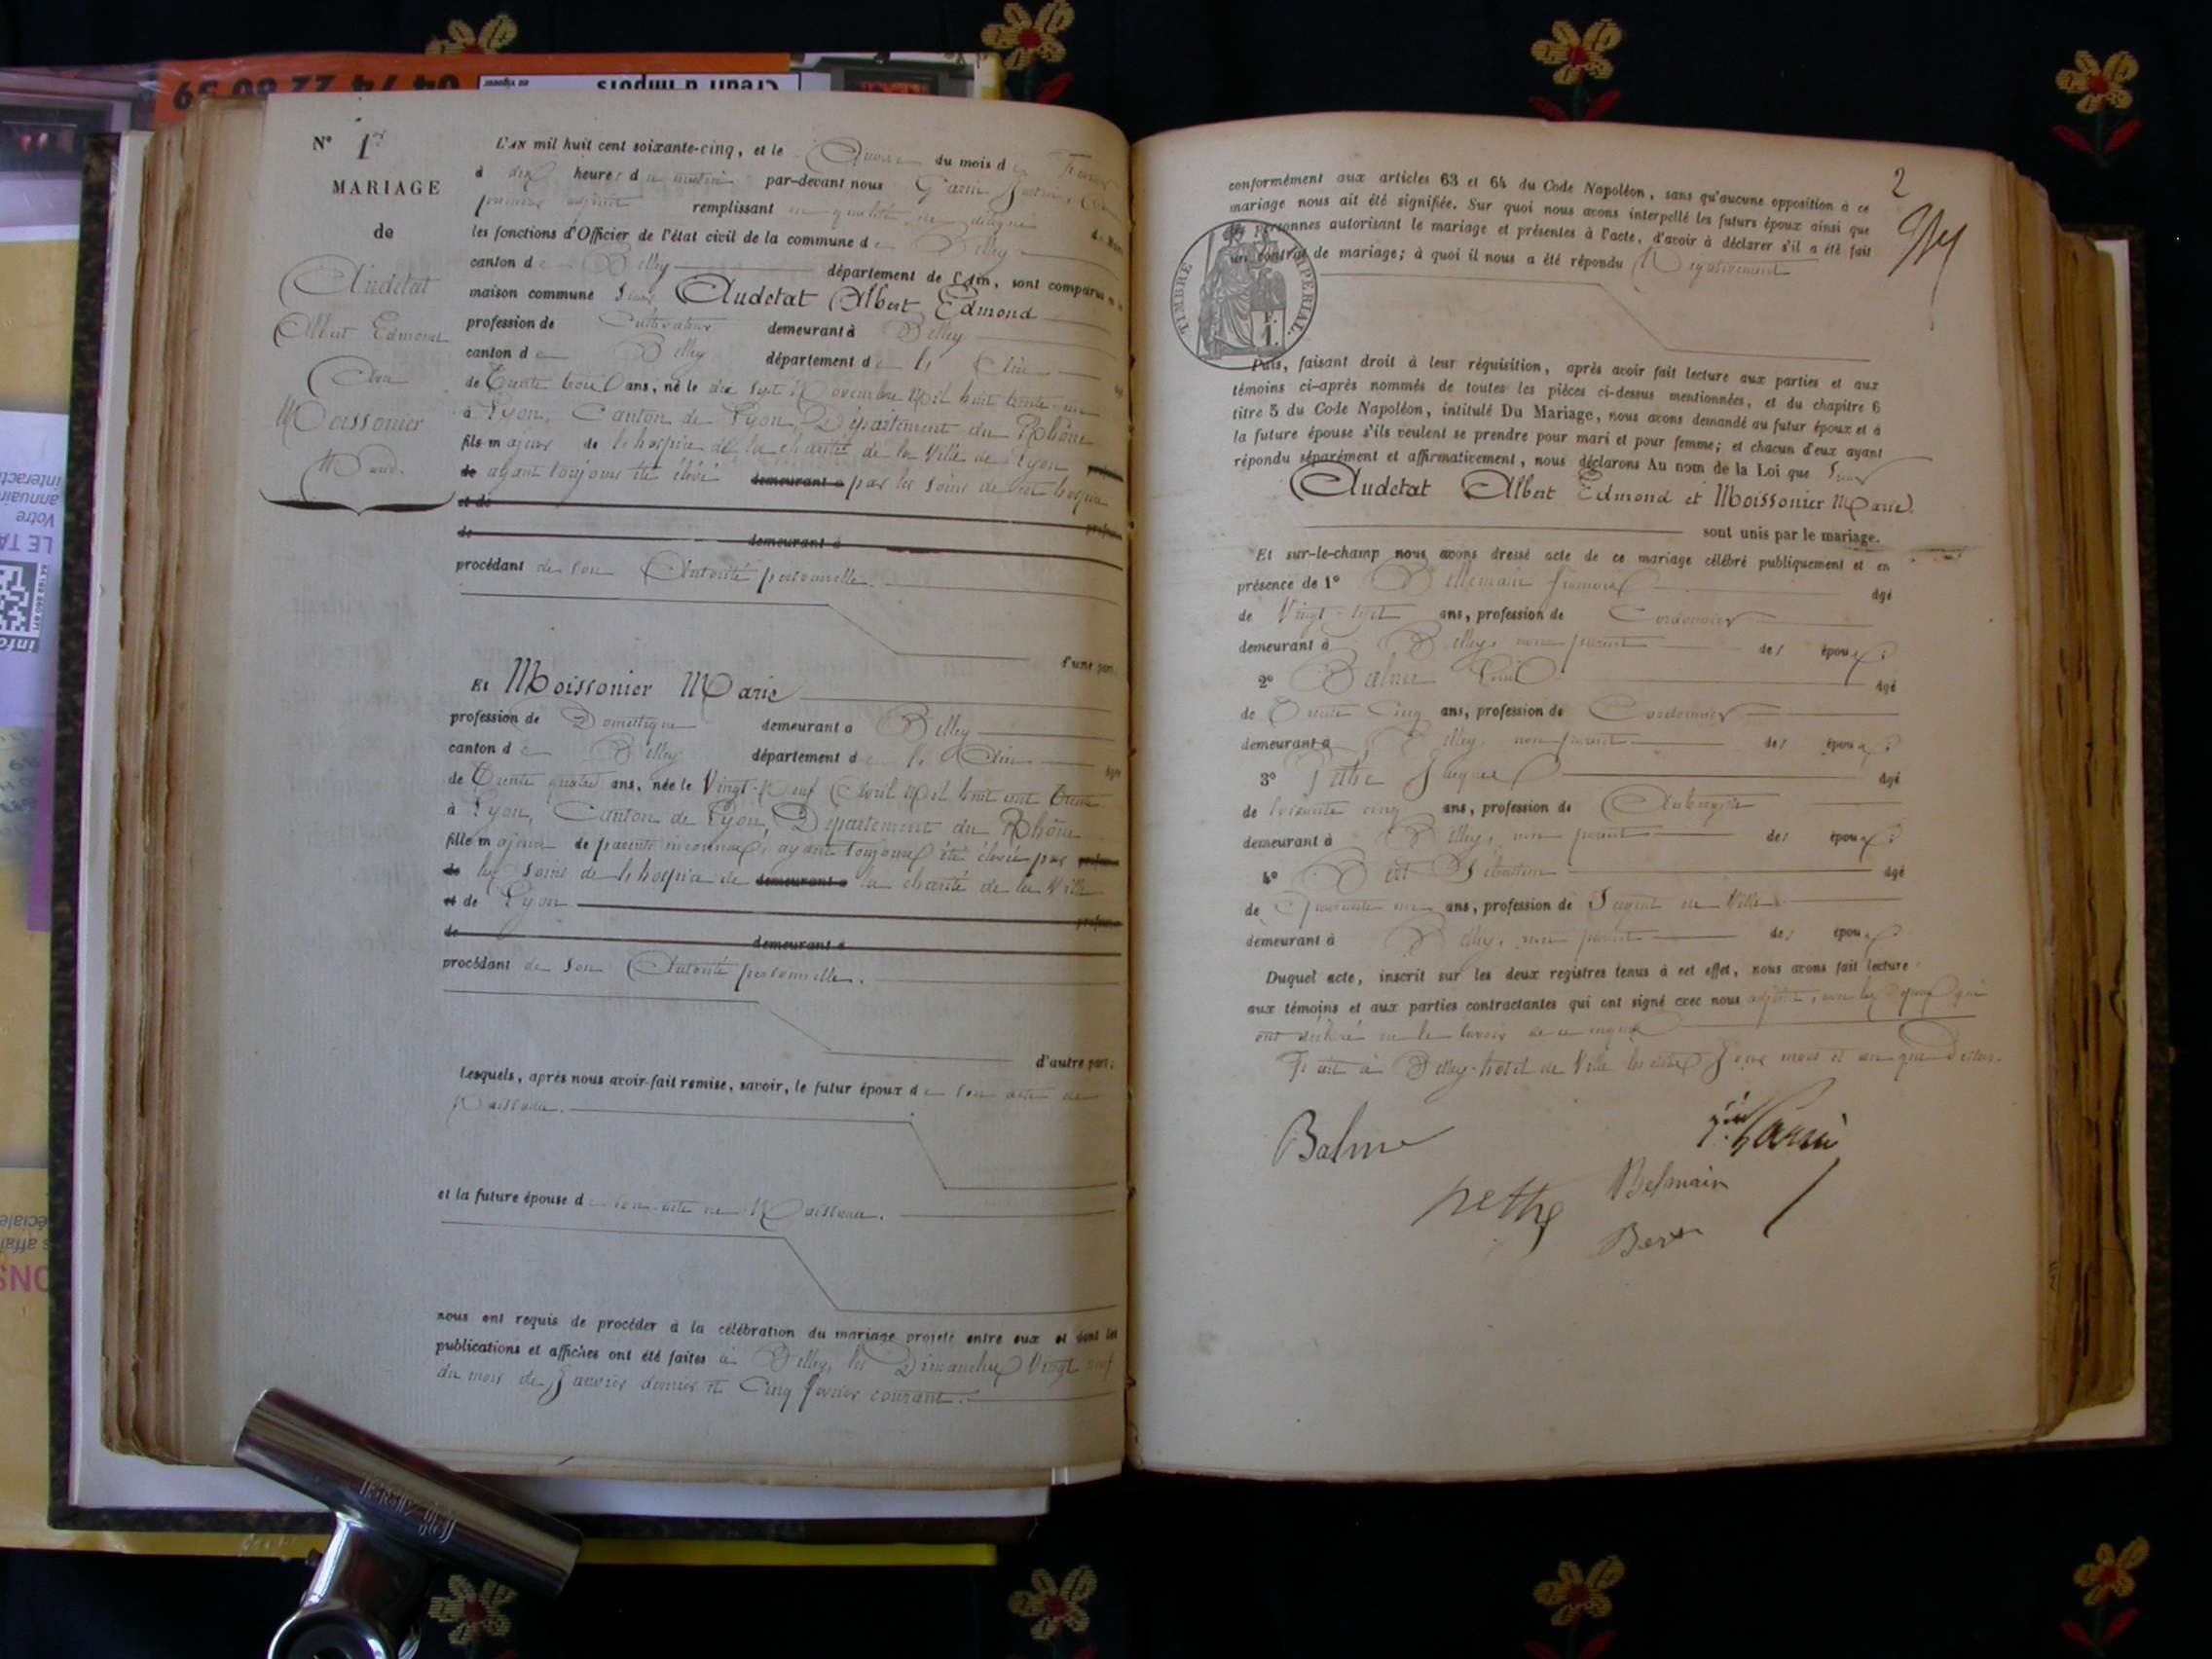 N° 1er
MARIAGE
de
Audétat
Albert Edmond
Avec
Moissonier
Marie.
L'AN mil huit cent soixante-cinq, et le du mois de Février
à dix heures du matin par-devant nous Garin
premier adjoint remplissant en qualité de délégué
les fonctions d'Officier de l'état civil de la commune de Belley
canton de Belley département de l'Ain, sont comparus en la
maison commune Sieur Audetat Albert Edmond
profession de Cultivateur demeurant à Belley
canton de Belley département de l'Ain
de Trente trois ans, né le dix Sept Novembre Mil huit cent trente un
à Lyon, Canton de Lyon, Département du Rhône
fils majeur de l'hospice de la charité de la Ville de Lyon
ayant toujours été élevé demeurant à par les soins de cet hospice
et de
de demeurant à
procédant de son Autorité personnelle.
d'une part.
Et Moissonier Marie
profession de Domestique demeurant à Belley
canton de Belley département de l'Ain
de Trente quatre ans, née le Vingt-Neuf Avril Mil huit cent trente
à Lyon, Canton de Lyon, Département du Rhône
fille majeure de parents inconnus, ayant toujours été élevée par
de les soins de l'hospice de demeurant à la charité de la Ville
et de Lyon
de demeurant à
procédant de son Autorité personnelle.
d'autre part;
Lesquels, après nous avoir fait remise, savoir, le futur époux de son acte de
Naissance.
et la future épouse de son acte de Naissance.
nous ont requis de procéder à la célébration du mariage projeté entre eux et dont les
publications et affiches ont été faites à Belley, les Dimanches Vingt neuf
du mois de Janvier dernier et Cinq février courant.
2
conformément aux articles 63 et 64 du Code Napoléon, sans qu'aucune opposition à ce
mariage nous ait été signifiée. Sur quoi nous avons interpellé les futurs époux ainsi que
les personnes autorisant le mariage et présentes à l'acte, d'avoir à déclarer s'il a été fait
un contrat de mariage; à quoi il nous a été répondu Négativement
TIMBRE IMPERIAL.
1 F.
Puis, faisant droit à leur réquisition, après avoir fait lecture aux parties et aux
témoins ci-après nommés de toutes les pièces ci-dessus mentionnées, et du chapitre 6
titre 5 du Code Napoléon, intitulé Du Mariage, nous avons demandé au futur époux et à
la future épouse s'ils veulent se prendre pour mari et pour femme; et chacun d'eux ayant
répondu séparément et affirmativement, nous déclarons Au nom de la Loi que Sieur
Audetat Albert Edmond et Moissonier Marie.
sont unis par le mariage.
Et sur-le-champ nous avons dressé acte de ce mariage célébré publiquement et en
présence de 1° Bellemain âgé
de Vingt-sept ans, profession de Cordonnier
demeurant à Belley, non parent des époux;
2° Balme âgé
de Trente Cinq ans, profession de Cordonnier
demeurant à Belley, non parent des époux;
3° Jacques âgé
de soixante cinq ans, profession de Aubergiste
demeurant à Belley, non parent des époux;
4° Sébastien âgé
de Quarante un ans, profession de Sergent de Ville
demeurant à Belley, non parent des époux.
Duquel acte, inscrit sur les deux registres tenus à cet effet, nous avons fait lecture
aux témoins et aux parties contractantes qui ont signé avec nous adjoint, non les époux qui
ont déclaré ne le savoir de ce requis
Fait à Belley hôtel de Ville les dits Jour mois et an que Dessus.
Balme
Garin
pethe
Belmain